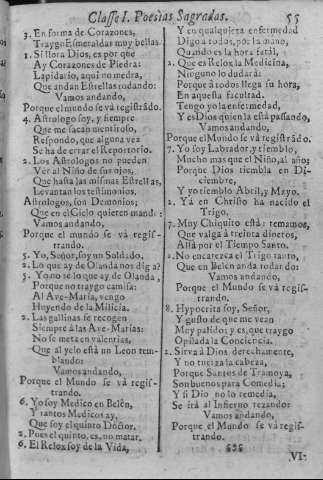 Classe I. Poesias Sagradas. 55
3. En forma de Corazones,
Traygo Esmeraldas muy bellas.
1. Si llora Dios, es por que
Ay Corazones de Piedra:
Lapidario, aqui no medra,
Que andan Estrellas rodando:
Vamos andando,
Porque el mundo se và registrãdo.
4. Astrologo soy, y siempre
Que me sacan mentiroso,
Respondo, que alguna vez
Se ha de errar el Reportorio.
2. Los Astrologos no pueden
Ver al Niño de sus ojos,
Que hasta las mismas Estrellas,
Levantan los testimonios.
Astrologos, son Demonios;
Que en el Cielo quieren mando:
Vamos andando,
Porque el mundo se và regis-
trando.
5. Yo, Señor, soy un Soldado.
2. Lo que ay de Olanda nos diga?
5. Yo no sè lo que ay de Olanda,
Porque no traygo camisa:
Al Ave-Maria, vengo
Huyendo de la Milicia.
2. Las gallinas se recogen
Siempre à las Ave-Marias:
No se meta en valentias,
Que al yelo està un Leon tem-
blando:
Vamos andando,
Porque el Mundo se và regis-
trando.
6. Yo soy Medico en Belèn,
Y tantos Medicos ay,
Que soy el quinto Doctor.
2. Pues el quinto, es, no matar.
6. El Relox soy de la Vida,
Y en qualquiera enfermedad
Digo à todos, põ: la mano,
Quando es la hora fatàl,
2. Que es Relox la Medicina,
Ninguno lo dudarà:
Porque à todos llega su hora,
En aquesta facultad.
Tengo yo la enfermedad,
Y es Dios quien la està passando,
Vamos andando,
Porque el Mundo se và registrãdo.
7. Yo soy Labrador, y tiemblo,
Mucho mas que el Niño, al año;
Porque Dios tiembla en Di-
ciembre,
Y yo tiemblo Abril, y Mayo.
2. Yà en Christo ha nacido el
Trigo.
7. Muy Chiquito està: temamos,
Que valga à treinta dineros,
Allà por el Tiempo Santo.
2. No encarezca el Trigo tanto,
Que en Belèn anda rodando:
Vamos andando,
Porque el Mundo se và regis-
trando.
8. Hypocrita soy, Señor,
Y gusto de que me vean
Muy palido; y es, que traygo
Opilada la Conciencia.
2. Sirva à Dios derechamente,
Y no tuerza la cabeza,
Porque Santos de Tramoya,
Son buenos para Comedia;
Y si Dio no lo remedia,
Se irà al Infierno rezando:
Vamos andando,
Porque el Mundo se và regis-
trando.
VI-